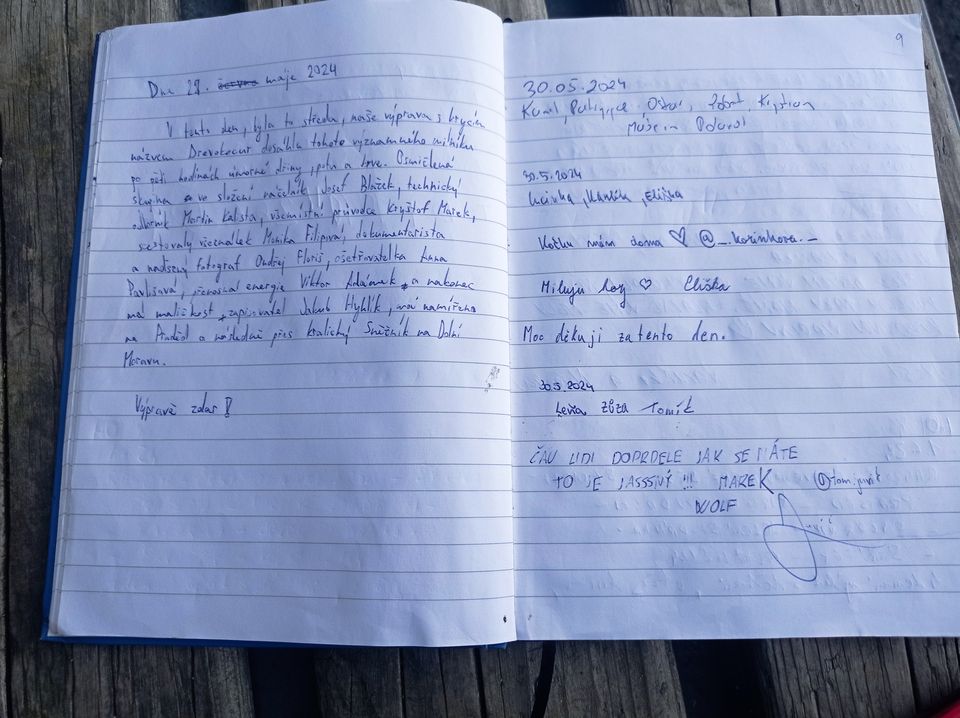 Dne 29. června máje 2024
V tento den, byla to středa, naše výprava s krycím
názvem Drevokocur dosáhla tohoto významného milníku
po pěti hodinách úmorné dřiny, potu a krve. Osmičlenná
skupina ve složení náčelník Josef Blažek, technický
odborník Martin Kalista, všemístní průvodce Kryštof Marek,
cestovately všeználek Monika Filipová, dokumentarista
a nadšený fotograf Ondřej Floriš, ošetřovatelka Anna
Pavlisová, přenosná energie Viktor Adámek a nakonec
má maličkost, zapisovatel Jakub Hyhlík, nyní namířeno
na Anděl a následně přes Kralický Sněžník na Dolní
Moravu.
Výpravě zdar!
9
30.05.2024
Kamil, Patrycja, Oskar, Robert, Krystian
30.5.2024
Lucinka, Kamča, Eliška
Kočku mám doma ♡ @_.korinkova._
Miluju hory ♡ Eliška
Moc děkuji za tento den.
30.5.2024
Zůza Tomík
ČAU LIDI DOPRDELE JAK SE MÁTE
TO JE MASSSIVÝ !!! MAREK @tom.juris
WOLF